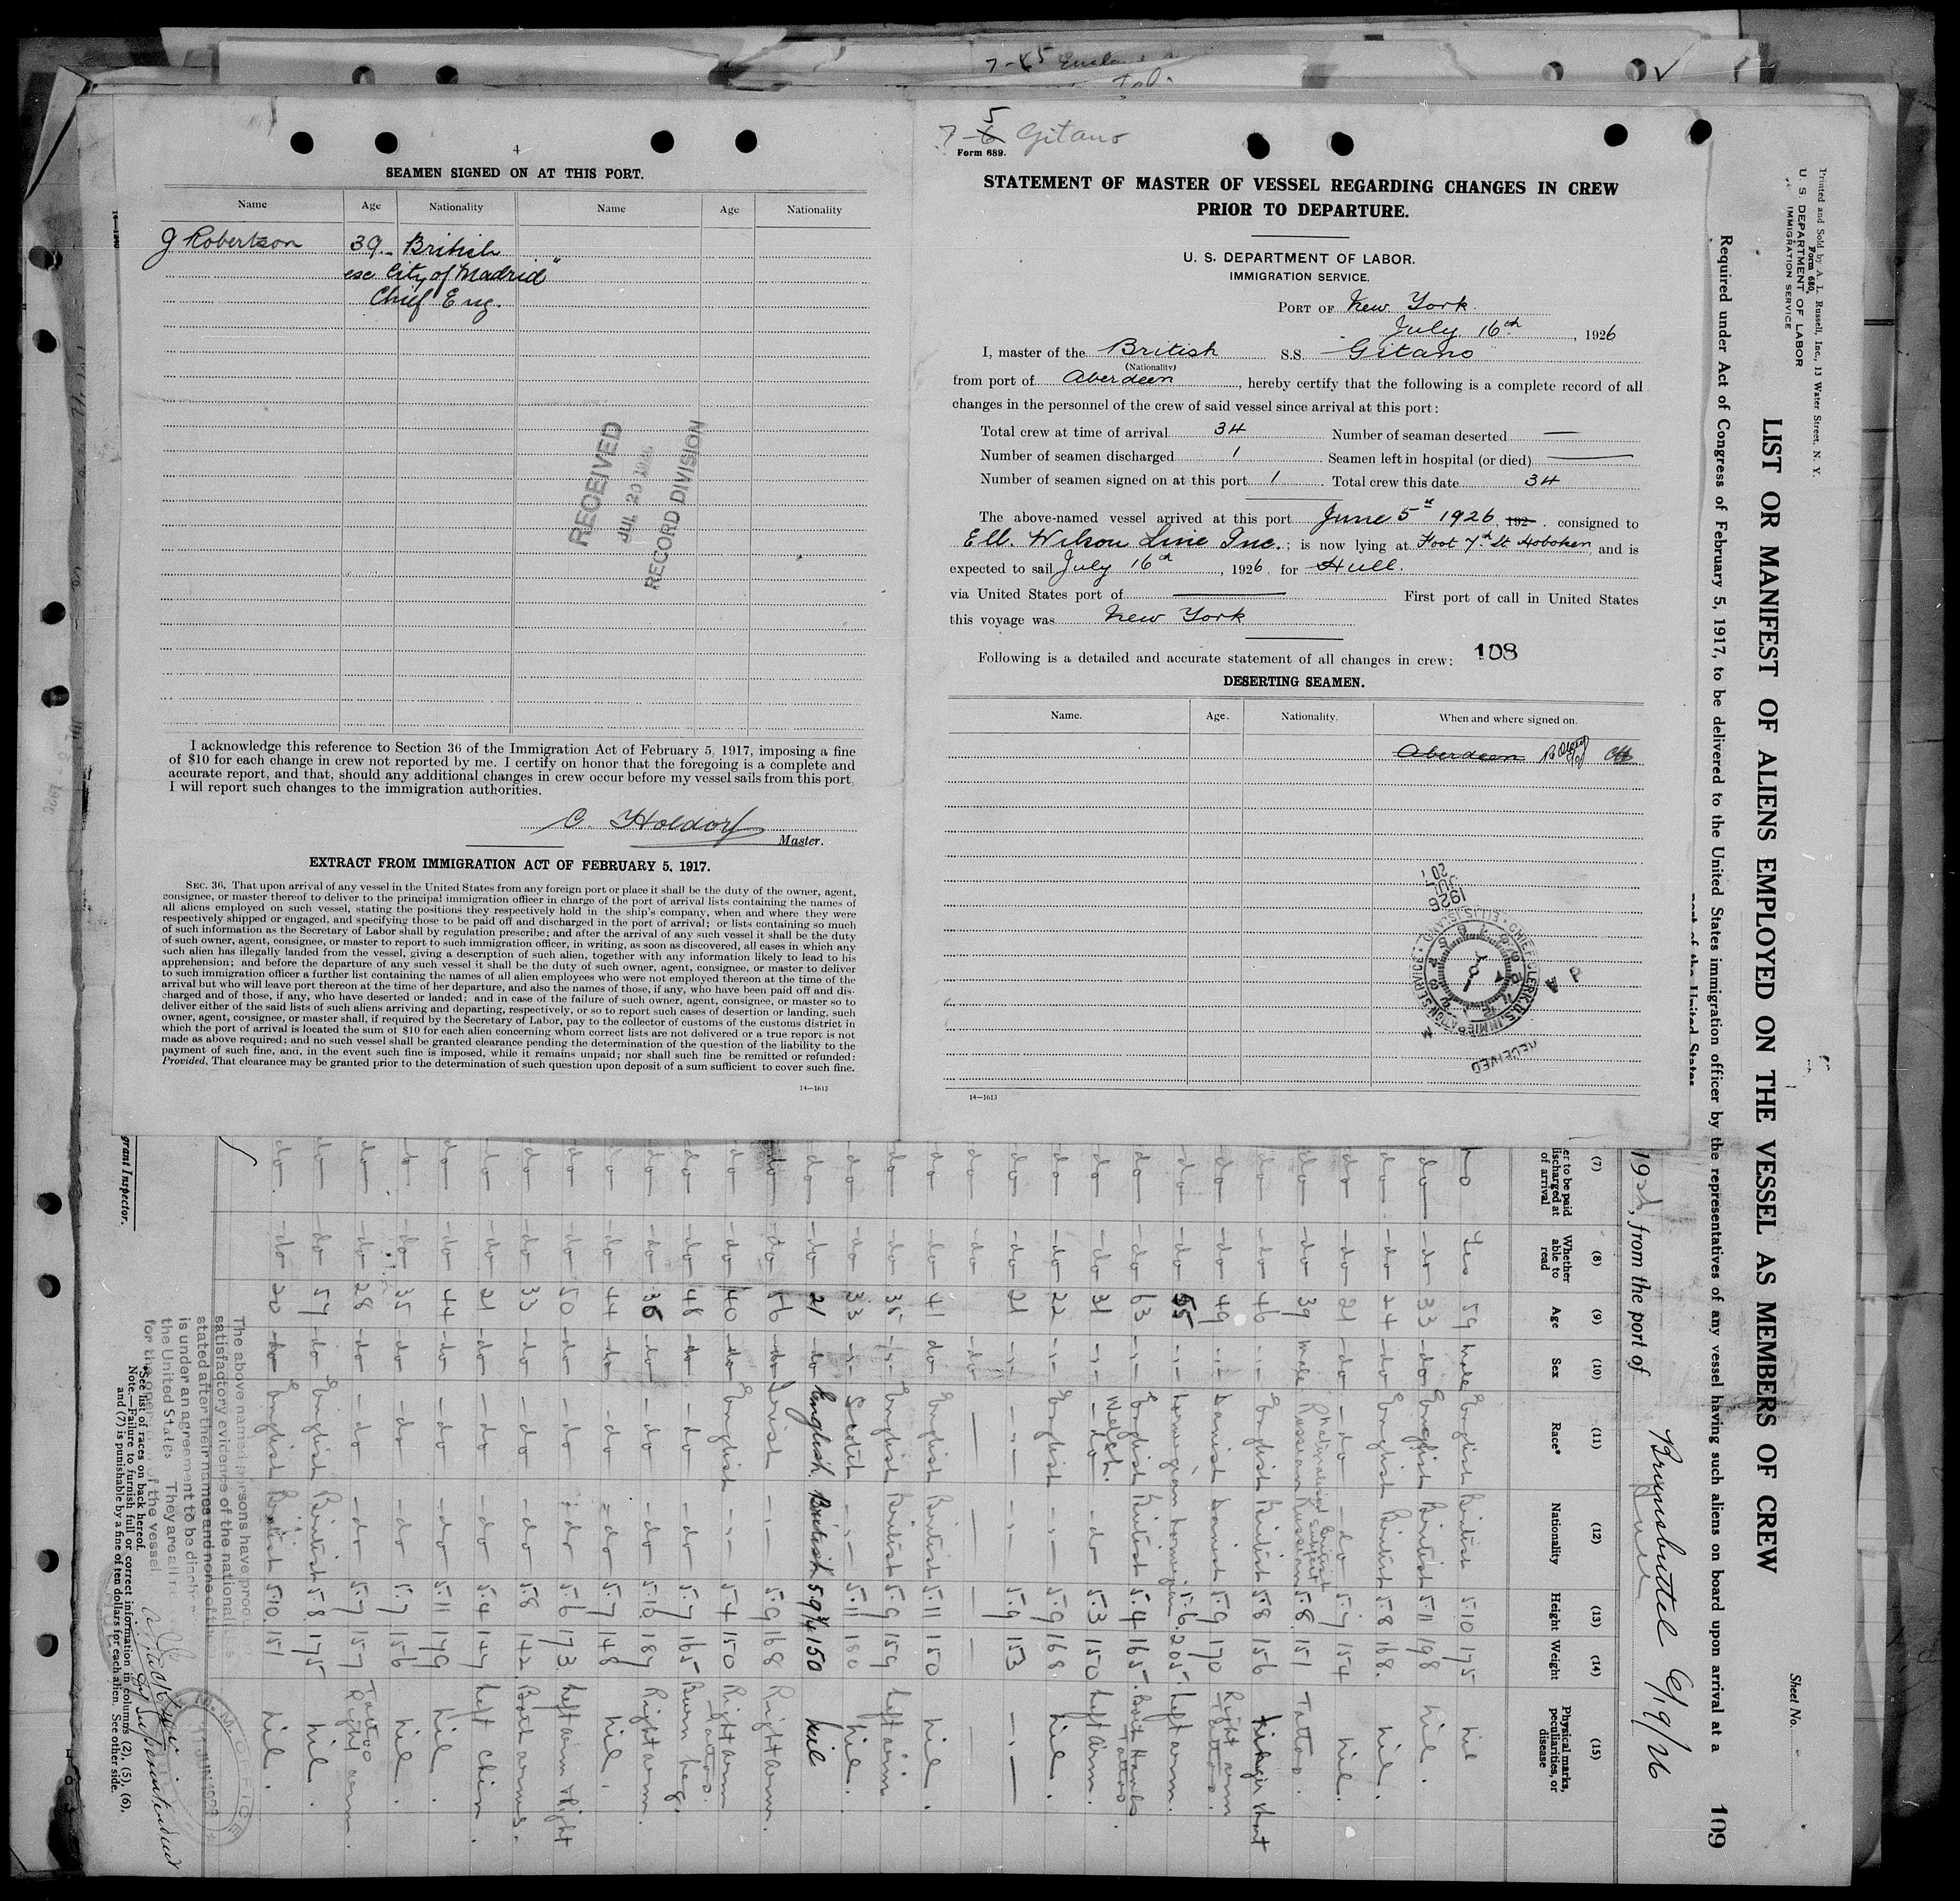 7-45
4
SEAMEN SIGNED ON AT THIS PORT.
Name Age Nationality Name Age Nationality
J Robertson 39 British
esc "City of Madrid"
Chief Eng.
RECEIVED
JUL 20 1926
RECORD DIVISION
I acknowledge this reference to Section 36 of the Immigration Act of February 5, 1917, imposing a fine
of $10 for each change in crew not reported by me. I certify on honor that the foregoing is a complete and
accurate report, and that, should any additional changes in crew occur before my vessel sails from this port,
I will report such changes to the immigration authorities.
C. Holdorf
Master.
EXTRACT FROM IMMIGRATION ACT OF FEBRUARY 5, 1917.
SEC. 36. That upon arrival of any vessel in the United States from any foreign port or place it shall be the duty of the owner, agent,
consignee, or master thereof to deliver to the principal immigration officer in charge of the port of arrival lists containing the names of
all aliens employed on such vessel, stating the positions they respectively hold in the ship's company, when and where they were
respectively shipped or engaged, and specifying those to be paid off and discharged in the port of arrival; or lists containing so much
of such information as the Secretary of Labor shall by regulation prescribe; and after the arrival of any such vessel it shall be the duty
of such owner, agent, consignee, or master to report to such immigration officer, in writing, as soon as discovered, all cases in which any
such alien has illegally landed from the vessel, giving a description of such alien, together with any information likely to lead to his
apprehension; and before the departure of any such vessel it shall be the duty of such owner, agent, consignee, or master to deliver
to such immigration officer a further list containing the names of all alien employees who were not employed thereon at the time of the
arrival but who will leave port thereon at the time of her departure, and also the names of those, if any, who have been paid off and dis-
charged and of those, if any, who have deserted or landed; and in case of the failure of such owner, agent, consignee, or master so to
deliver either of the said lists of such aliens arriving and departing, respectively, or so to report such cases of desertion or landing, such
owner, agent, consignee, or master shall, if required by the Secretary of Labor, pay to the collector of customs of the customs district in
which the port of arrival is located the sum of $10 for each alien concerning whom correct lists are not delivered or a true report is not
made as above required; and no such vessel shall be granted clearance pending the determination of the question of the liability to the
payment of such fine, and, in the event such fine is imposed, while it remains unpaid; nor shall such fine be remitted or refunded:
Provided, That clearance may be granted prior to the determination of such question upon deposit of a sum sufficient to cover such fine.
14—1613
7-5 Gitano
Form 689.
STATEMENT OF MASTER OF VESSEL REGARDING CHANGES IN CREW
PRIOR TO DEPARTURE.
U. S. DEPARTMENT OF LABOR.
IMMIGRATION SERVICE.
PORT OF New York.
July 16th, 1926
I, master of the British S.S. Gitano
(Nationality)
from port of Aberdeen, hereby certify that the following is a complete record of all
changes in the personnel of the crew of said vessel since arrival at this port:
Total crew at time of arrival 34 Number of seaman deserted —
Number of seamen discharged 1 Seamen left in hospital (or died) —
Number of seamen signed on at this port 1 Total crew this date 34
The above-named vessel arrived at this port June 5th 1926, 192 . consigned to
Ell. Wilson Line Inc.; is now lying at Foot 7th St Hoboken, and is
expected to sail July 16th, 1926 for Hull.
via United States port of — First port of call in United States
this voyage was New York
Following is a detailed and accurate statement of all changes in crew: 108
DESERTING SEAMEN.
Name. Age. Nationality. When and where signed on.
Aberdeen
1926
CHIEF CLERK U.S. IMMIGRATION SERVICE
RECEIVED
14—1613
Printed and Sold by A. L. Russell, Inc., 13 Water Street, N. Y.
Form 680,
U. S. DEPARTMENT OF LABOR
IMMIGRATION SERVICE
LIST OR MANIFEST OF ALIENS EMPLOYED ON THE VESSEL AS MEMBERS OF CREW
Sheet No.
Required under Act of Congress of February 5, 1917, to be delivered to the United States immigration officer by the representatives of any vessel having such aliens on board upon arrival at a
port of the United States
109
, from the port of Brunsbuttel 6/19/26
(7) (8) (9) (10) (11) (12) (13) (14) (15)
er to be paid discharged at of arrival
Whether able to read
Age
Sex
Race*
Nationality
Height
Weight
Physical marks, peculiarities, or disease
No Yes 59 Male English British 5.10 175 Nil
do do 33 do English British 5.11 198 Nil.
do do 24 do English British 5.8 168. Nil.
do do 21 do do do 5.7 154 Nil.
do do 39 Male Russian Russian 5.8. 151 Tattoo.
Naturalised British Subject
do do 46 English British 5.8 156
do do 49 Danish Danish 5.9 170 Right arm Tattoo.
do do 55 Norwegian Norwegian 5.6. 205. Left arm.
do do 63 English British 5.4 165. Both Hands Tattoo
do do 31 Welsh. do 5.3 150 Left arm.
do do 22 English 5.9 168. Nil.
do do 21 5.9 153
do do do
do do 41 do English British 5.11 150 Nil.
do do 35 English British 5.9 159 Left arm
do do 33 Scotch 5.11 180 Nil.
do do 21 do English. British 5.9¾ 150 Nil
do do 56 do Irish 5.9 168 Right arm.
do do 40 do English 5.4 150 Right arm Tattoo.
do do 48 do do do 5.7 165. Burn Leg.
do do 36 do do do 5.10 187 Right arm.
do do 44 do do do 5.7 148 Nil.
do do 50 do do do 5.6 173. Left arm & Right
do do 33 do do do 5.8 142. Both arms.
do do 21 do do do 5.4 147 Left Chin.
do do 44 do do do 5.11 179 Nil.
do do 35 do do do 5.7 156 Nil.
do do 28 do do do 5.7 157 Tattoo Right arm.
do do 57 do English British 5.8. 175 Nil.
do. do 20 do English British 5.10. 151 Nil.
The above named persons have produced
satisfactory evidence of the nationalities
stated after their names and none of them
is under an agreement to be discharged
the United States They are all
for the of the vessel
*See list of races on back hereof.
Note.—Failure to furnish full or correct information in columns (2), (5), (6),
and (7) is punishable by a fine of ten dollars for each alien. See other side.
grant Inspector.